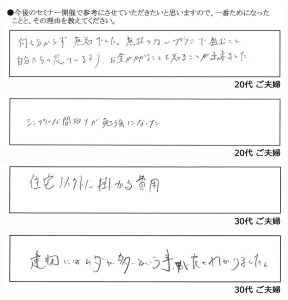 ●今後のセミナー開催で参考にさせていただきたいと思いますので、一番ためになった
ことと、その理由を教えてください。
何も分からず 無知でした。無駄のないプランで 進むこと
自分たちの思っているより、お金がかかることを知ることが出来ました。
20代 ご夫婦
シンプルな間取りが勉強になった
20代 ご夫婦
住宅 掛かる費用
30代 ご夫婦
建物にはムダが多いという事 だとわかりました。
30代 ご夫婦